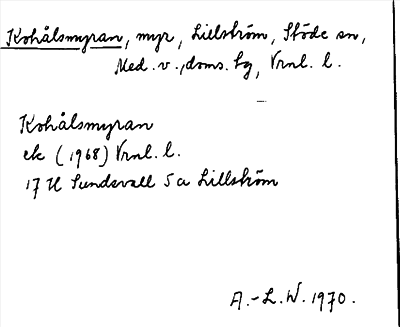 Kohålsmyran, myr, Lillström, Stöde sn,
Med. v., doms. hg, Vrnl. l.
Kohålsmyran
ek (1968) Vrnl. l.
17 H Sundsvall 5 a Lillström
A.-L. W. 1970.